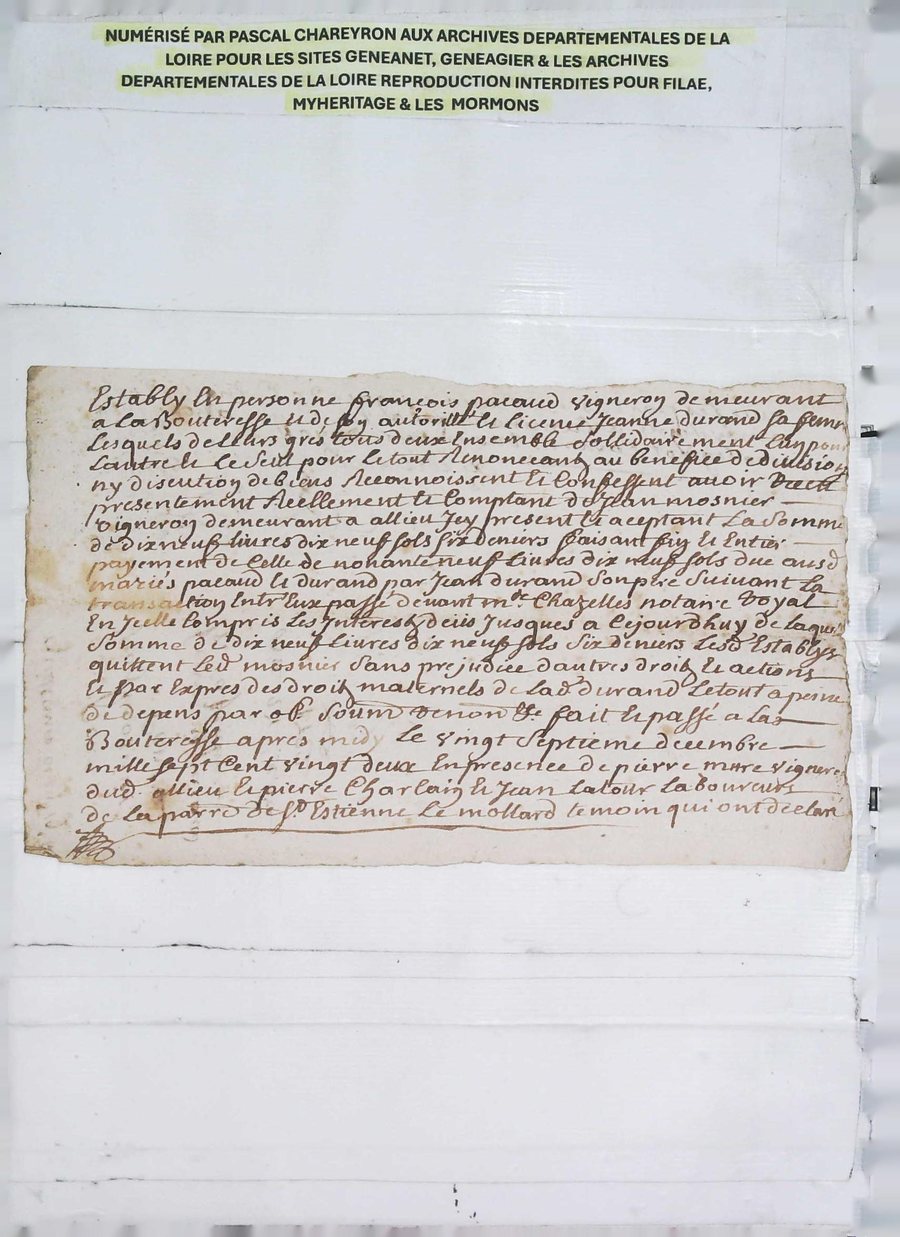 NUMÉRISÉ PAR PASCAL CHAREYRON AUX ARCHIVES DEPARTEMENTALES DE LA
LOIRE POUR LES SITES GENEANET, GENEAGIER & LES ARCHIVES
DEPARTEMENTALES DE LA LOIRE REPRODUCTION INTERDITES POUR FILAE,
MYHERITAGE & LES MORMONS
Establÿ En personne françois pacaud vigneron demeurant
a La Bouteresse et de soy autorité et licence Jeanne durand sa femme
Lesquels de Leurs grés tous deux Ensemble sollidairement Lun pour
Lautre et Le Seul pour le tout Renonceantz au benefice de division
ny discution de biens Reconnoissent et Confessent avoir Receu
presentement Reellement et Comptant de Jean mosnier
vigneron demeurant a allieu Icy present et aceptant La Somme
de dix neuf livres dix neuf sols six deniers faisant fin et Entier
payement de Celle de nonante neuf Livres dix neuf sols due ausd
mariés pacaud et durand par Jean durand Son pere Suivant La
transaction Entr'Eux passé devant me Chazelles notaire Royal
En Icelle Compris Les Interestz deus Jusques a Cejourdhuy de Laquelle
Somme de dix neuf Livres dix neuf sols Six deniers Lesd Establys
quittent Led mosnier Sans prejudice d'autres droitz et actions
et par Expres des droitz maternels de Lad durand Le tout a peine
de depens par ob Soum Renon fait et passé a Las
Bouteresse apres midy Le vingt Septieme decembre
mille sept Cent vingt deux En presence de pierre mure vigneron
dud allieu Et pierre Charlain Et Jean Latour Laboureurs
de La parre de St Estienne Le mollard temoin qui ont declaré